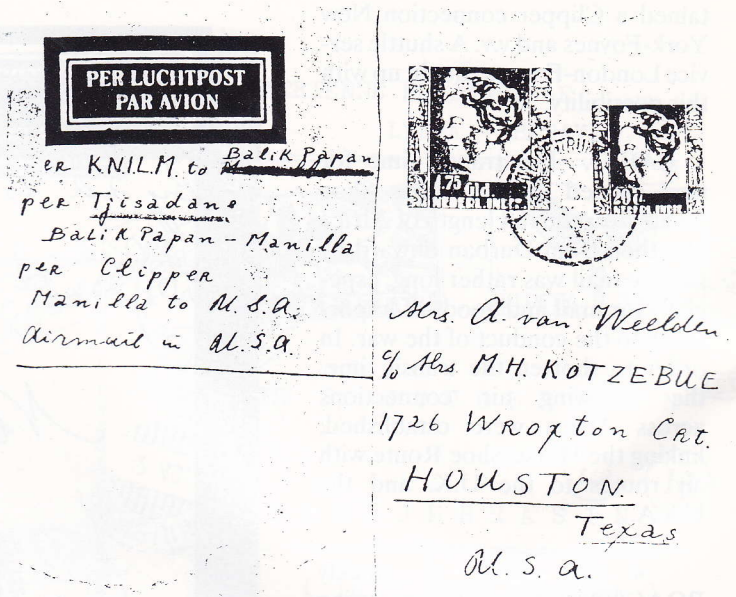 PER LUCHTPOST
PAR AVION
er K.N.I.L.M. to Balik Papan
per Tjisadane
Balik Papan - Manilla
per Clipper
Manilla to U.S.A.
Airmail in U.S.A.
1.75 Gld
NEDERL. INDIE
20 ct
NEDERL. INDIE
Mrs. A. van Weelden
c/o Mrs M.H. KOTZEBUE
1726 Wroxton Crt.
HOUSTON
Texas
U. S. A.